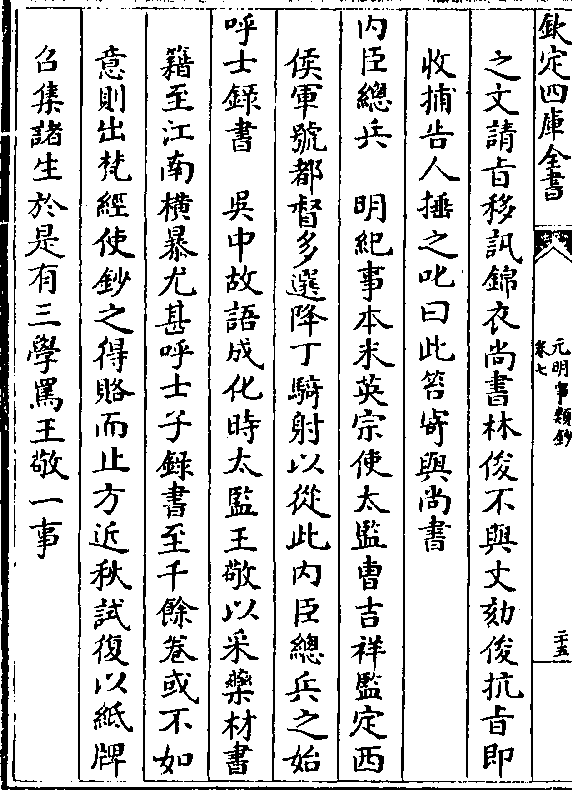 欽定四庫全書
元明事類鈔
卷七
二十五
之文請旨移訊錦衣尚書林俊不與丈劾俊抗旨即
收捕告人捶之叱曰此笞寄與尚書
内臣總兵　明紀事本末英宗使太監曹吉祥監定西
侯軍號都督多選降丁騎射以從此内臣總兵之始
呼士録書　吳中故語成化時太監王敬以采藥材書
籍至江南横暴尤甚呼士子録書至千餘卷或不如
意則出梵經使鈔之得賂而止方近秋試復以紙牌
召集諸生於是有三學罵王敬一事